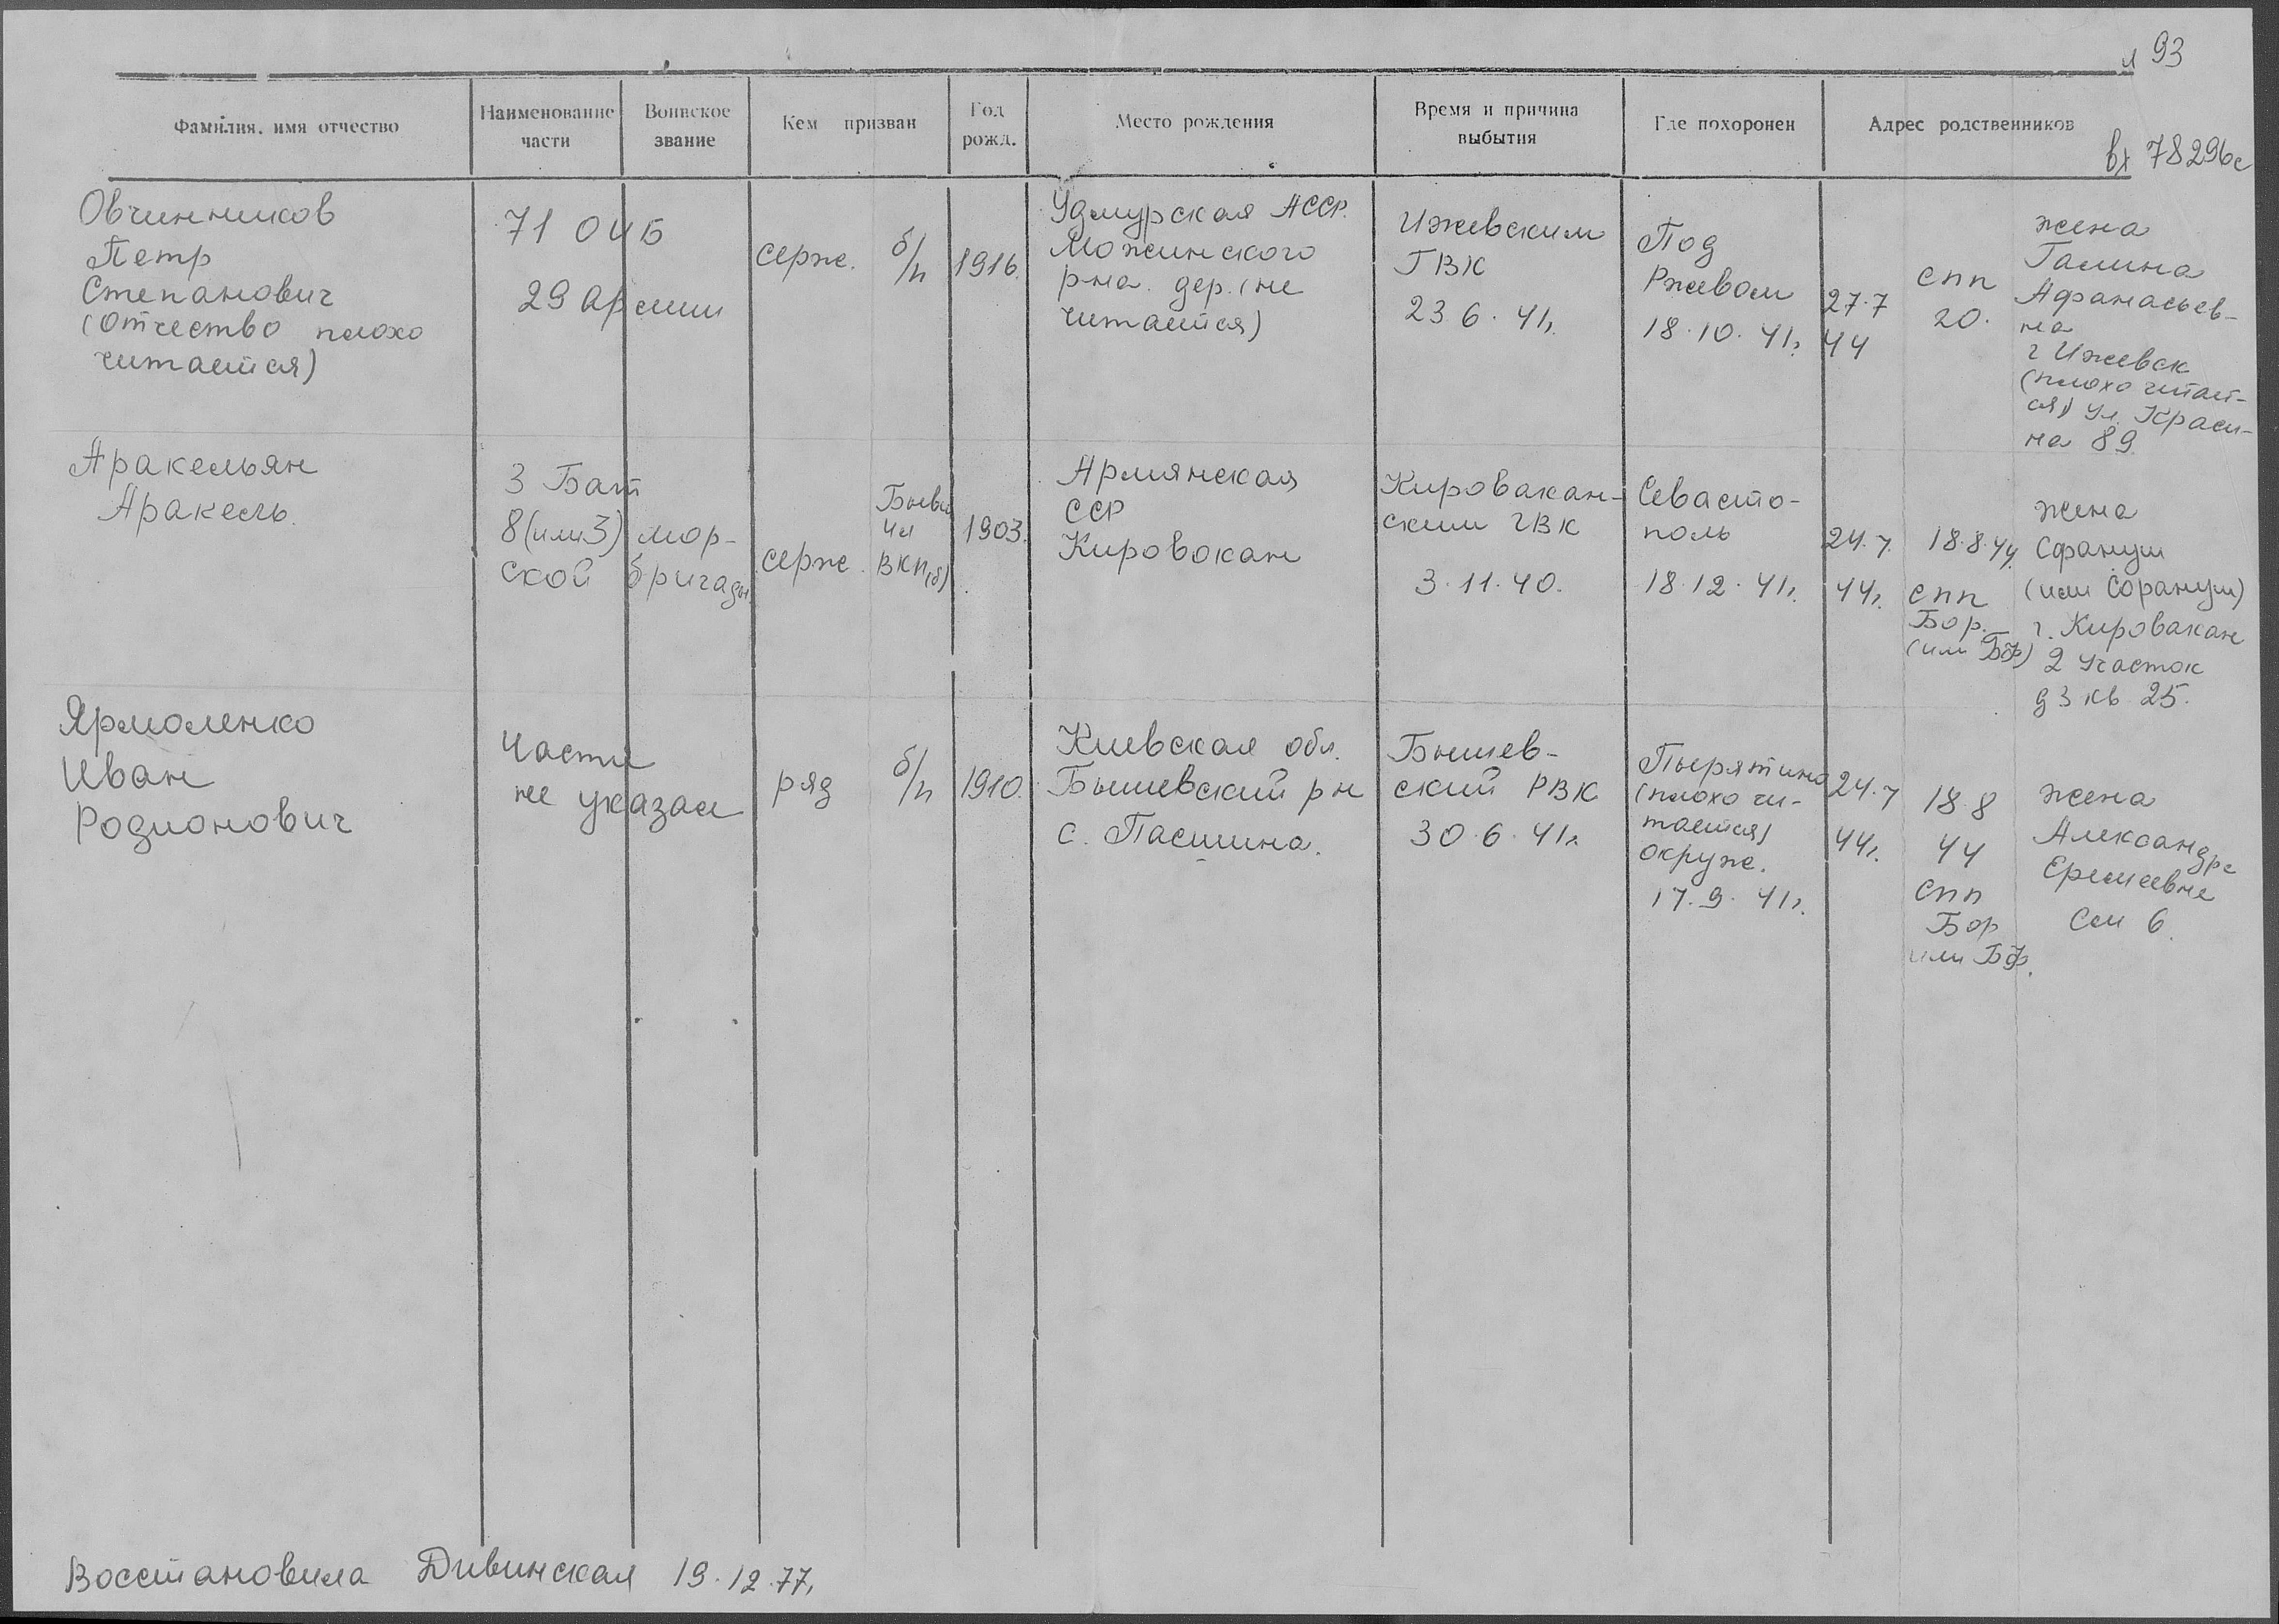 л 93
Фамилия, имя отчество
Наименование части
Воинское звание
Кем призван
Год рожд.
Место рождения
Время и причина выбытия
Где похоронен
Адрес родственников
вх 78296с
Овчинников
Петр
Степанович
(отчество плохо
читается)
71 ОИБ
29 армии
серж.
б/п
1916.
Удмурская АССР.
Можинского
р-на. дер. (не
читается)
Ижевским
ГВК
23 6. 41г.
Под
Ржевом
18.10.41г.
27.7
44
спп
20.
жена
Галина
Афанасьев-
на
г Ижевск
(плохо читает-
ся) ул. Краси-
на 89.
Аракельян
Аракель.
3 Бат
8(или 3) мор-
ской бригады.
серж.
Бывш
чл
ВКП(б)
1903.
Армянская
ССР
Кировокан
Кировакан-
ским ГВК
3.11.40.
Севасто-
поль
18.12.41г.
24.7.
44г.
18.8.44
спп
Бор.
(или БФ)
жена
Сфануш
(или Сорануш)
г. Кировакан
2 участок
д 3 кв. 25.
Ярмоленко
Иван
Родионович
Части
не указан
ряд
б/п
1910.
Киевская обл.
Бышевский рн
с. Пасшина.
Бышев-
ский РВК
30.6.41г.
Пырятино
(плохо чи-
тается)
окруж.
17.9.41г.
24.7
44г.
18.8
44
спп
Бор
или БФ.
жена
Александре
Еремеевне
Сем 6.
Восстановила Дивинская 19.12.77г